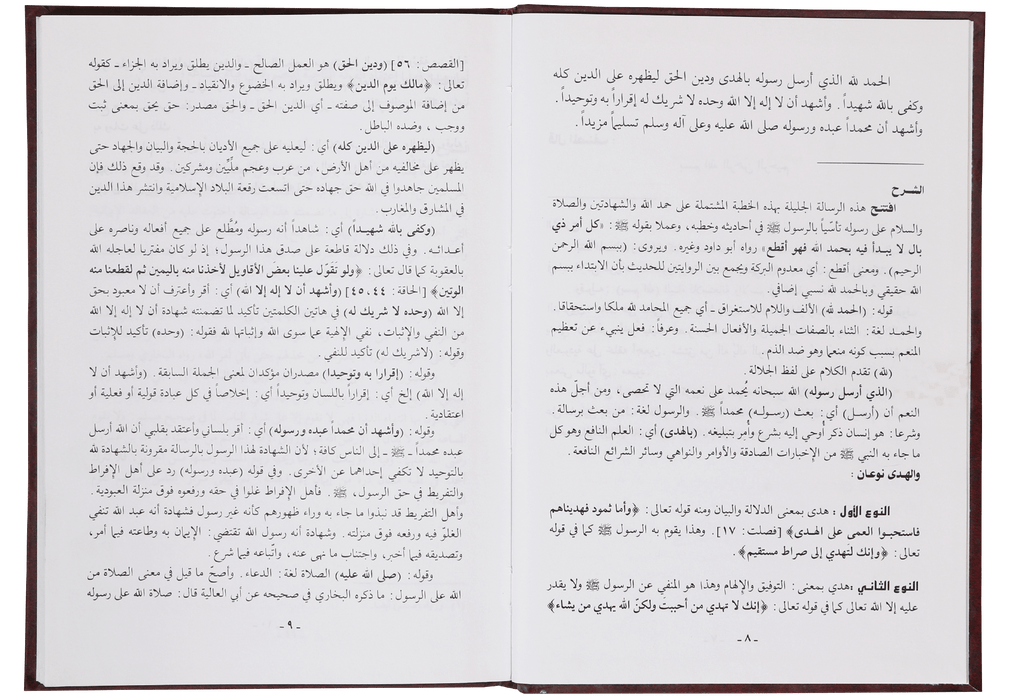 الحمد لله الذي أرسل رسوله بالهدى ودين الحق ليظهره على الدين كله
وكفى بالله شهيداً . وأشهد أن لا إله إلا الله وحده لا شريك له إقراراً به وتوحيداً .
وأشهد أن محمداً عبده ورسوله صلى الله عليه وعلى آله وسلم تسليماً مزيداً .
الشرح
افتتح هذه الرسالة الجليلة بهذه الخطبة المشتملة على حمد الله والشهادتين والصلاة
والسلام على رسوله تأسّياً بالرسول ﷺ في أحاديثه وخطبه، وعملا بقوله ﷺ: «كل أمر ذي
بال لا يبدأ فيه بحمد الله فهو أقطع» رواه أبو داود وغيره. ويروى: (ببسم الله الرحمن
الرحيم). ومعنى أقطع: أي معدوم البركة ويجمع بين الروايتين للحديث بأن الابتداء ببسم
الله حقيقي وبالحمد لله نسبي إضافي.
قوله: (الحمد لله) الألف واللام للاستغراق ـ أي جميع المحامد لله ملكا واستحقاقا.
والحمد لغة: الثناء بالصفات الجميلة والأفعال الحسنة. وعرفاً: فعل ينبيء عن تعظيم
المنعم بسبب كونه منعما وهو ضد الذم.
(لله) تقدم الكلام على لفظ الجلالة.
(الذي أرسل رسوله) الله سبحانه يُحمد على نعمه التي لا تحصى، ومن أجلّ هذه
النعم أن (أرسل) أي: بعث (رسوله) محمداً ﷺ. والرسول لغة: من بعث برسالة.
وشرعا: هو إنسان ذكر أُوحي إليه بشرع وأُمِر بتبليغه. (بالهدى) أي: العلم النافع وهو كل
ما جاء به النبي ﷺ من الإخبارات الصادقة والأوامر والنواهي وسائر الشرائع النافعة.
والهدى نوعان:
النوع الأول: هدى بمعنى الدلالة والبيان ومنه قوله تعالى: ﴿وأما ثمود فهديناهم
فاستحبوا العمى على الهدى﴾ [فصلت: ١٧]. وهذا يقوم به الرسول ﷺ كما في قوله
تعالى: ﴿وإنك لتهدي إلى صراط مستقيم﴾.
النوع الثاني: هدى بمعنى: التوفيق والإلهام وهذا هو المنفي عن الرسول ﷺ ولا يقدر
عليه إلا الله تعالى كما في قوله تعالى: ﴿إنك لا تهدي من أحببت ولكنّ الله يهدي من يشاء﴾
ـ ٨ ـ
[القصص: ٥٦] (ودين الحق) هو العمل الصالح ـ والدين يطلق ويراد به الجزاء ـ كقوله
تعالى: ﴿مالك يوم الدين﴾ ويطلق ويراد به الخضوع والانقياد ـ وإضافة الدين إلى الحق
من إضافة الموصوف إلى صفته ـ أي الدين الحق ـ والحق مصدر: حق يحق بمعنى ثبت
ووجب، وضده الباطل.
(ليظهره على الدين كله) أي: ليعليه على جميع الأديان بالحجة والبيان والجهاد حتى
يظهر على مخالفيه من أهل الأرض، من عرب وعجم ملّيّين ومشركين. وقد وقع ذلك فإن
المسلمين جاهدوا في الله حق جهاده حتى اتسعت رقعة البلاد الإسلامية وانتشر هذا الدين
في المشارق والمغارب.
(وكفى بالله شهيداً) أي: شاهداً أنه رسوله ومُطَّلع على جميع أفعاله وناصره على
أعدائه. وفي ذلك دلالة قاطعة على صدق هذا الرسول؛ إذ لو كان مفتريا لعاجله الله
بالعقوبة كما قال تعالى: ﴿ولو تقوّل علينا بعض الأقاويل لأخذنا منه باليمين ثم لقطعنا منه
الوتين﴾ [الحاقة: ٤٤، ٤٥] (وأشهد أن لا إله إلا الله) أي: أقر وأعترف أن لا معبود بحق
إلا الله (وحده لا شريك له) في هاتين الكلمتين تأكيد لما تضمنته شهادة أن لا إله إلا الله
من النفي والإثبات، نفي الإلهية عما سوى الله وإثباتها لله فقوله: (وحده) تأكيد للإثبات
وقوله: (لاشريك له) تأكيد للنفي.
وقوله: (إقرارا به وتوحيدا) مصدران مؤكدان لمعنى الجملة السابقة. (وأشهد أن لا
إله إلا الله) إلخ أي: إقراراً باللسان وتوحيداً أي: إخلاصاً في كل عبادة قولية أو فعلية أو
اعتقادية.
وقوله: (وأشهد أن محمداً عبده ورسوله) أي: أقر بلساني وأعتقد بقلبي أن الله أرسل
عبده محمداً ـ ﷺ ـ إلى الناس كافة؛ لأن الشهادة لهذا الرسول بالرسالة مقرونة بالشهادة لله
بالتوحيد لا تكفي إحداهما عن الأخرى. وفي قوله (عبده ورسوله) رد على أهل الإفراط
والتفريط في حق الرسول، ﷺ. فأهل الإفراط غلوا في حقه ورفعوه فوق منزلة العبودية.
وأهل التفريط قد نبذوا ما جاء به وراء ظهورهم كأنه غير رسول فشهادة أنه عبد الله تنفي
الغلوّ فيه ورفعه فوق منزلته. وشهادة أنه رسول الله تقتضي: الإيمان به وطاعته فيما أمر،
وتصديقه فيما أخبر، واجتناب ما نهى عنه، واتّباعه فيما شرع.
وقوله: (صلى الله عليه) الصلاة لغة: الدعاء. وأصحّ ما قيل في معنى الصلاة من
الله على الرسول: ما ذكره البخاري في صحيحه عن أبي العالية قال: صلاة الله على رسوله
ـ ٩ ـ